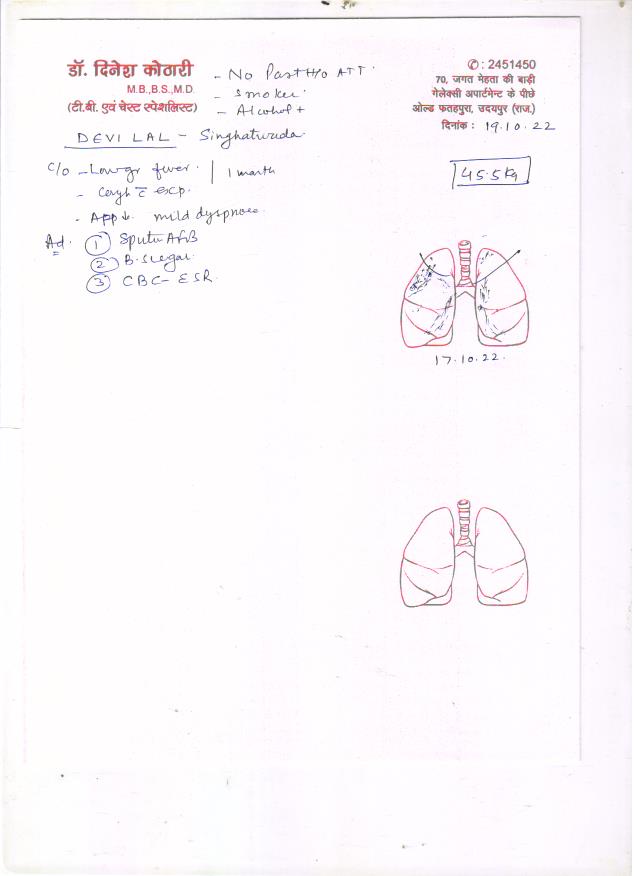 डॉ. दिनेश कोठारी
M.B.,B.S.,M.D.
(टी.बी. एवं चेस्ट स्पेशलिस्ट)
- No Past H/o ATT.
- Smoker
- Alcohol +
✆ : 2451450
70, जगत मेहता की बाड़ी
गेलेक्सी अपार्टमेन्ट के पीछे
ओल्ड फतहपुरा, उदयपुर (राज.)
दिनांक : 19.10.22
DEVI LAL -
C/o - Low gr fever. | 1 month
- Cough c̄ exp.
- App ↓. mild dyspnoea.
45.5 Kg
Ad.
① Sputum AFB
② B. Sugar
③ CBC - ESR
17.10.22.